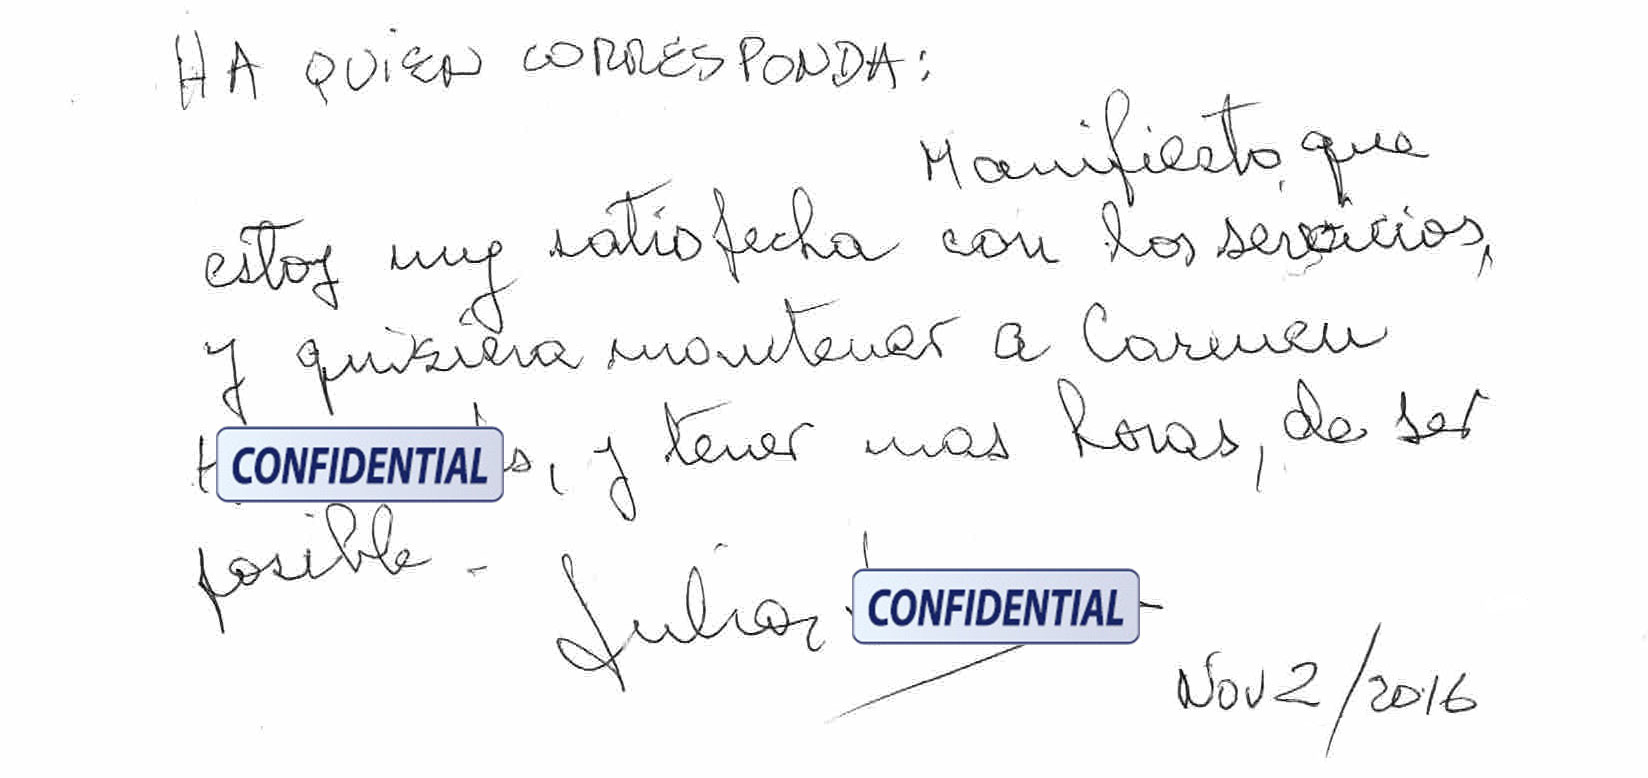 HA QUIEN CORRESPONDA:
Manifiesto, que
estoy muy satisfecha con los servicios,
y quisiera mantener a Carmen
CONFIDENTIAL s, y tener mas horas, de ser
posible -
Julia CONFIDENTIAL
Nov 2/2016